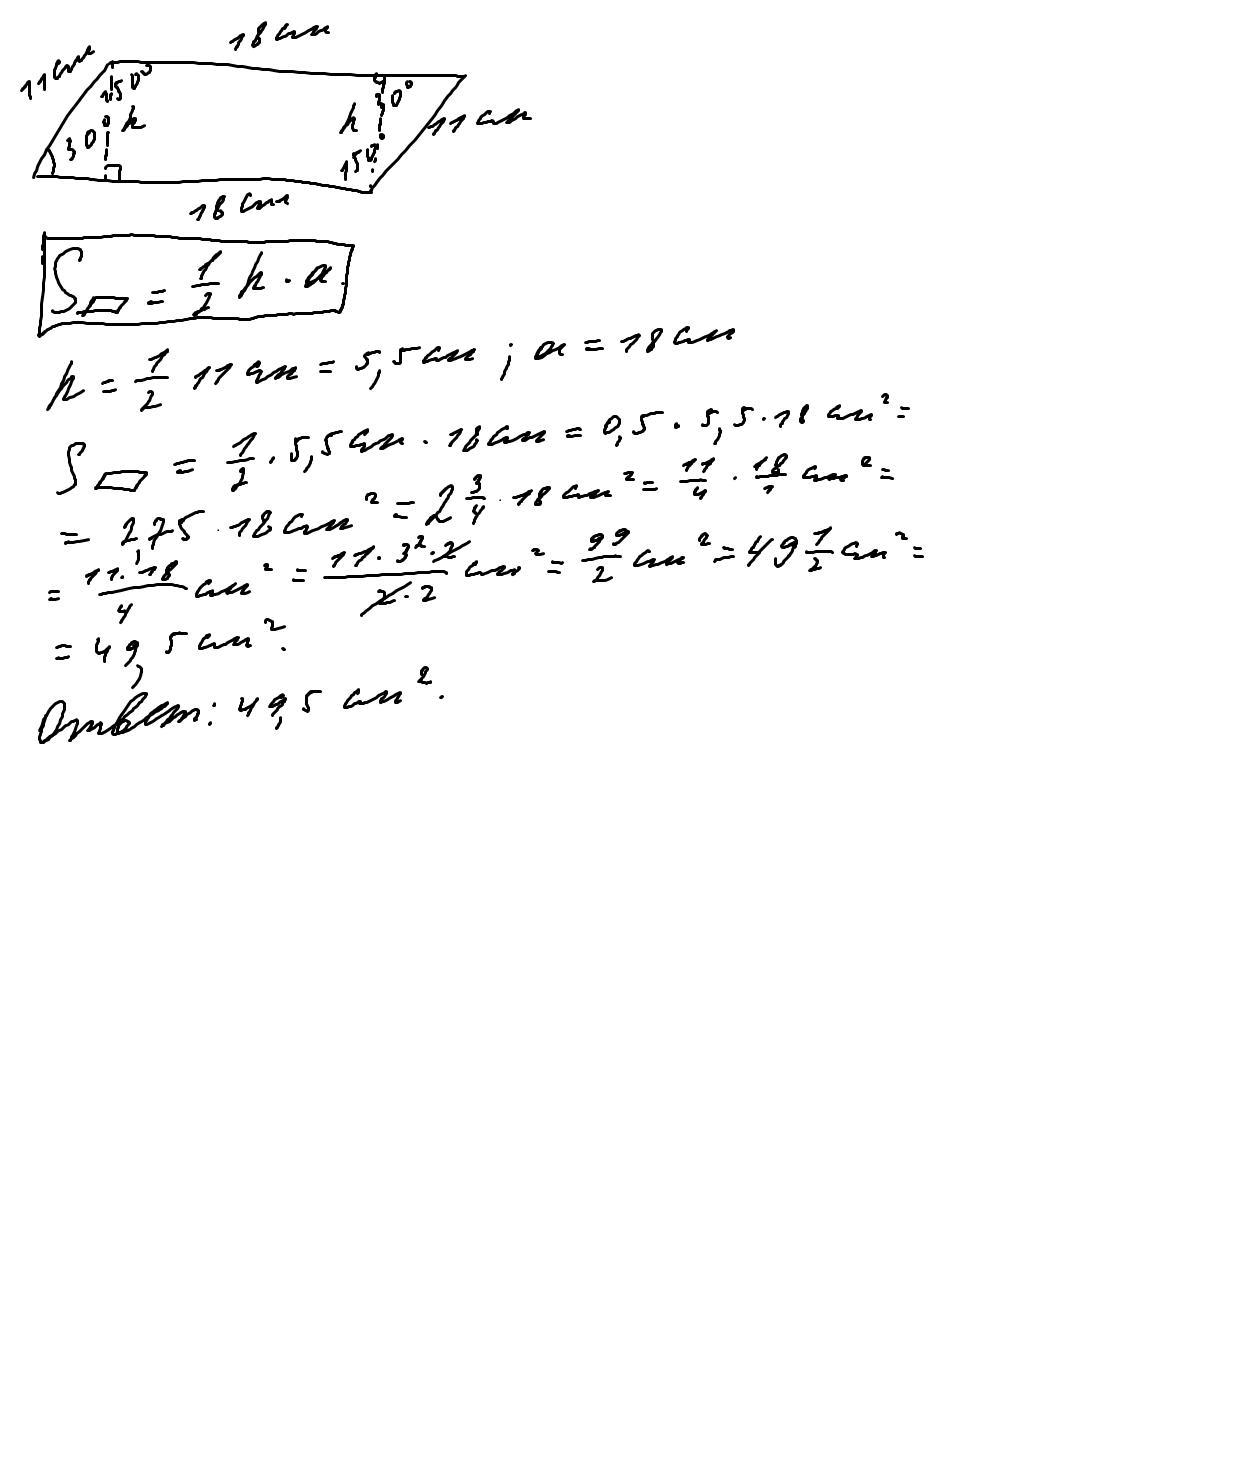 18 см
11 см
150°
30°
h
h
30°
150°
11 см
18 см
S▱ = 1/2 h · a.
h = 1/2 11 см = 5,5 см ; a = 18 см
S▱ = 1/2 · 5,5 см · 18 см = 0,5 · 5,5 · 18 см² =
= 2,75 · 18 см² = 2 3/4 · 18 см² = 11/4 · 18/1 см² =
= 11·18/4 см² = 11·3²·2/2·2 см² = 99/2 см² = 49 1/2 см² =
= 49,5 см².
Ответ: 49,5 см².